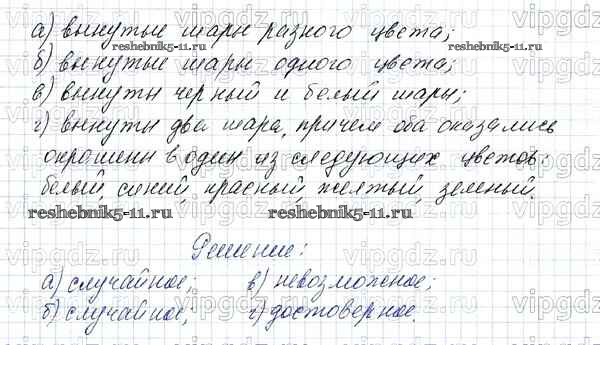 а) вынутые шары разного цвета;
б) вынутые шары одного цвета;
в) вынуты черный и белый шары;
г) вынуты два шара, причем оба оказались
окрашены в один из следующих цветов:
белый, синий, красный, желтый, зеленый.
Решение:
а) случайное; в) невозможное;
б) случайное; г) достоверное.
reshebnik5-11.ru
reshebnik5-11.ru
reshebnik5-11.ru
reshebnik5-11.ru
vipgdz.ru